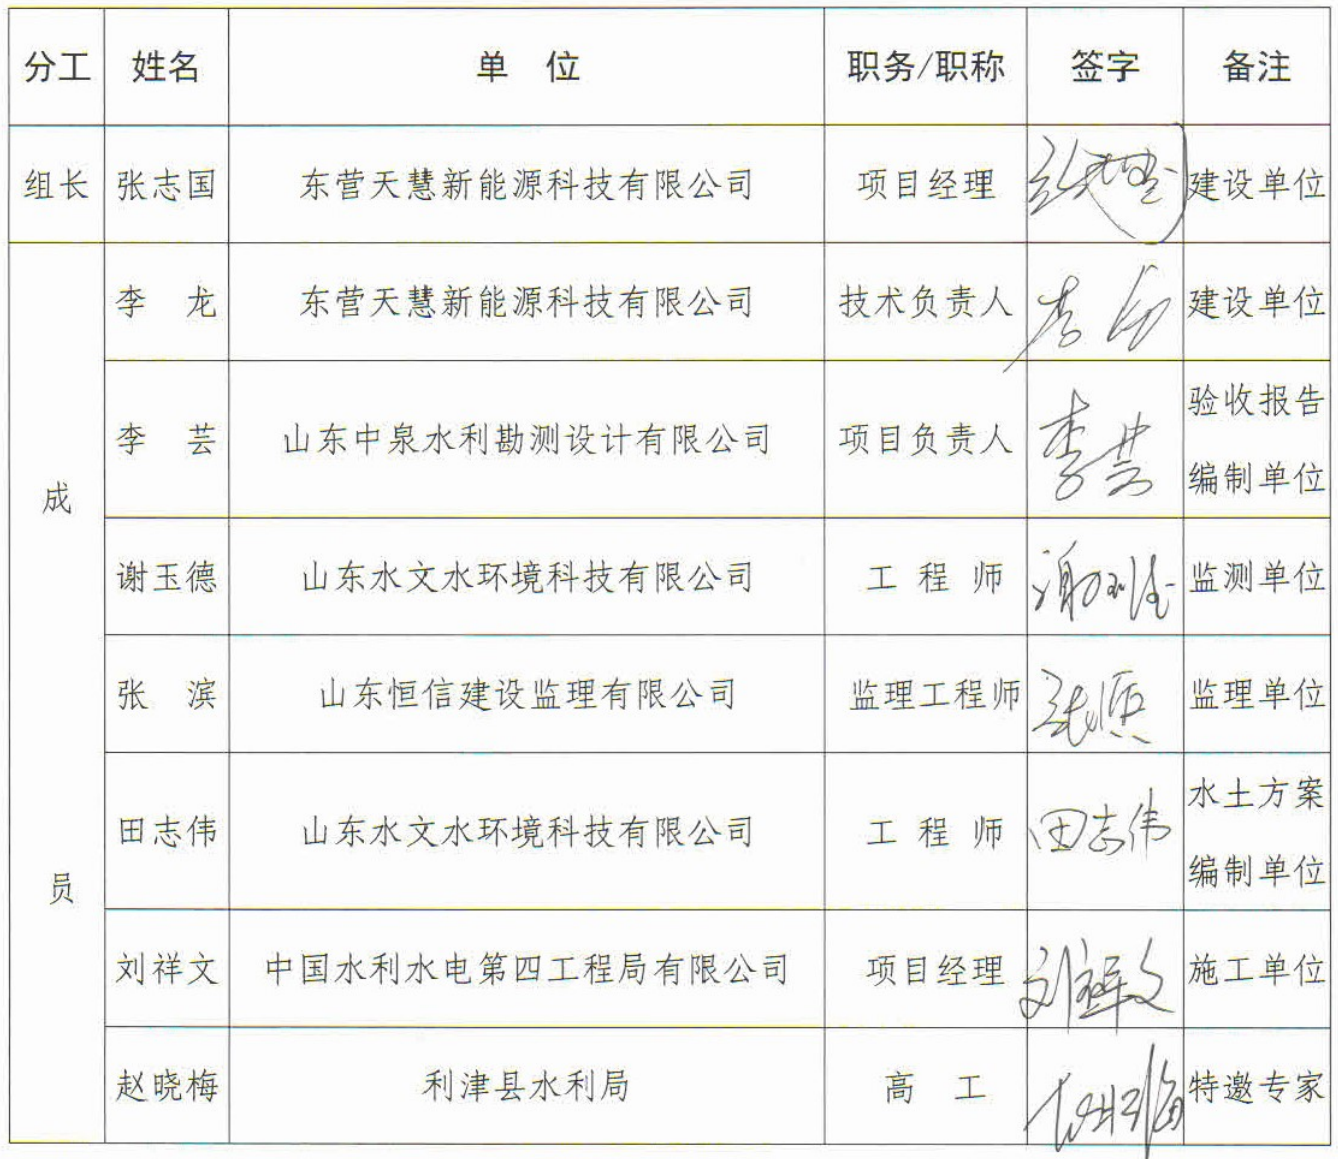 分工 姓名 单 位 职务/职称 签字 备注
组长 张志国 东营天慧新能源科技有限公司 项目经理 张志国 建设单位
成
李 龙 东营天慧新能源科技有限公司 技术负责人 李龙 建设单位
李 芸 山东中泉水利勘测设计有限公司 项目负责人 李芸 验收报告
编制单位
谢玉德 山东水文水环境科技有限公司 工 程 师 谢玉德 监测单位
张 滨 山东恒信建设监理有限公司 监理工程师 张滨 监理单位
员
田志伟 山东水文水环境科技有限公司 工 程 师 田志伟 水土方案
编制单位
刘祥文 中国水利水电第四工程局有限公司 项目经理 刘祥文 施工单位
赵晓梅 利津县水利局 高 工 特邀专家